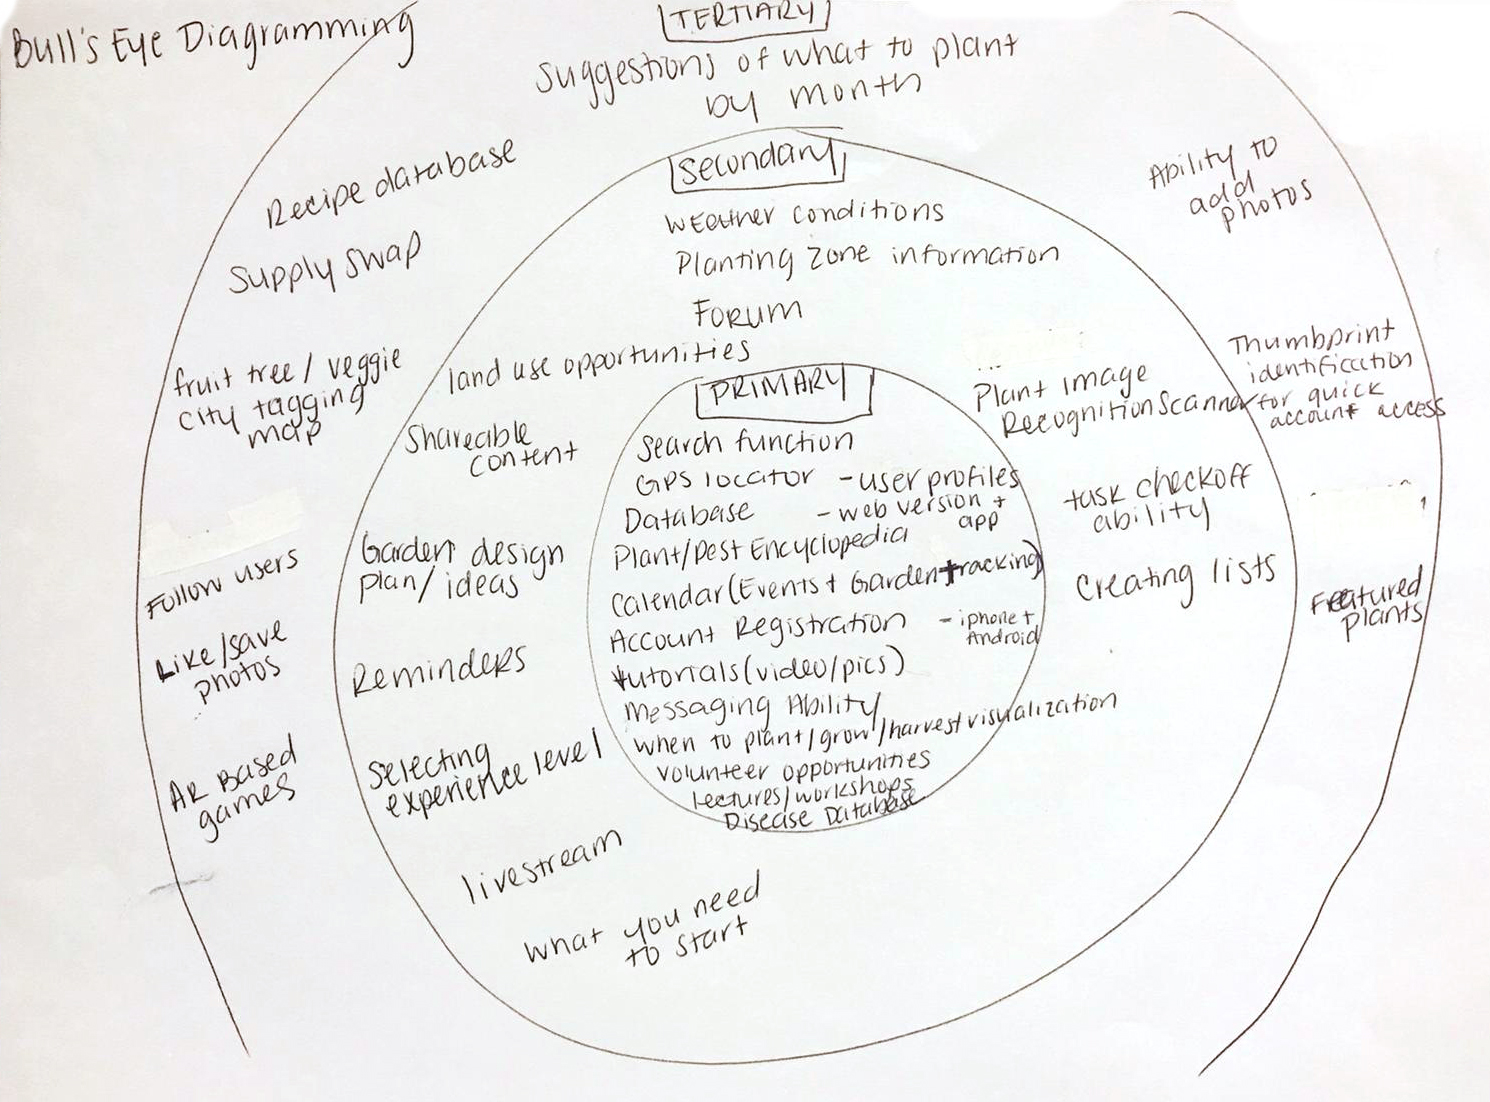 Bull's Eye Diagramming
TERTIARY
Suggestions of what to plant
by month
Recipe database
Supply swap
fruit tree / veggie
city tagging
map
Follow users
Like/save
photos
AR Based
games
Ability to
add
photos
Thumbprint
identification
for quick
account access
Featured
plants
Secondary
Weather conditions
Planting zone information
Forum
land use opportunities
Shareable
content
Garden design
plan/ideas
Reminders
Selecting
experience level
livestream
what you need
to start
Plant Image
Recognition Scanner
task checkoff
ability
Creating lists
PRIMARY
Search function
GPS locator - user profiles
Database - web version +
app
Plant/Pest Encyclopedia
Calendar (Events + Garden tracking)
Account Registration - iphone +
Android
tutorials (video/pics)
Messaging Ability
when to plant/grow/harvest visualization
volunteer opportunities
lectures/workshops
Disease Database